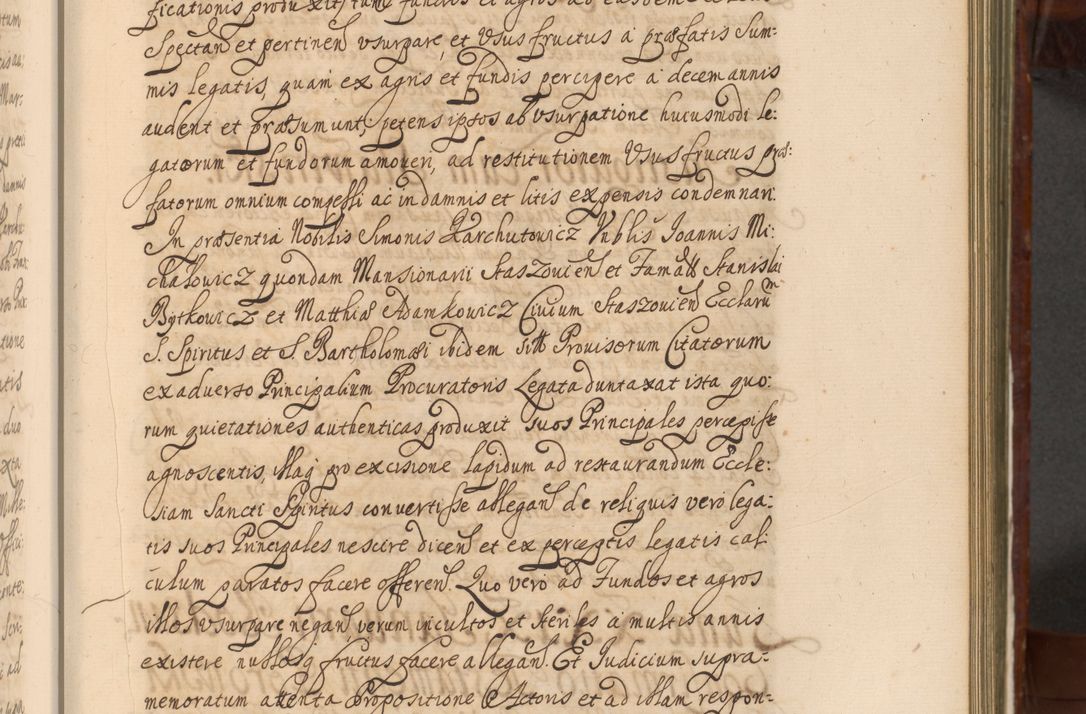 ficationis produxit, tum fundos et agros ad easdem
Spectan et pertinen usurpare, et Usus fructus à præfatis Sum-
mis legatis, quam ex agris et fundis percipere à decem annis
audent et præsumunt, petens ipsos ab usurpatione hucusmodi le:
gatorum et fundorum amoveri, ad restitutionem Usus fructus præ:
fatorum omnium compelli ac in damnis et litis expensis condemnari.
In præsentia Nobilis Simonis Karchutowicz Vnblis Ioannis Mi:
chałowicz quondam Mansionarii Staszovien et Famatt Stanislai
Bytkowicz et Matthiæ Adamkowicz Civium Staszovien Ecclarum
S. Spiritus et S. Bartholomæi ibidem sitt Provisorum Citatorum
ex adverso Principalium Procuratoris Legata duntaxat ista quo:
rum quietationes authenticas produxit suos Principales percepisse
agnoscentis, illaq pro excisione lapidum ad restaurandum Eccle:
siam Sancti Spiritus convertisse allegan de reliquis vero lega:
tis suos Principales nescire dicen et ex perceptis legatis cal:
culum paratos facere offeren. Quo vero ad Fundos et agros
illos usurpare negan verum incultos et steriles à multis annis
existere nullosq fructus facere allegan. Et Iudicium supra-
memoratum attenta Propositione Actoris et ad illam respon-